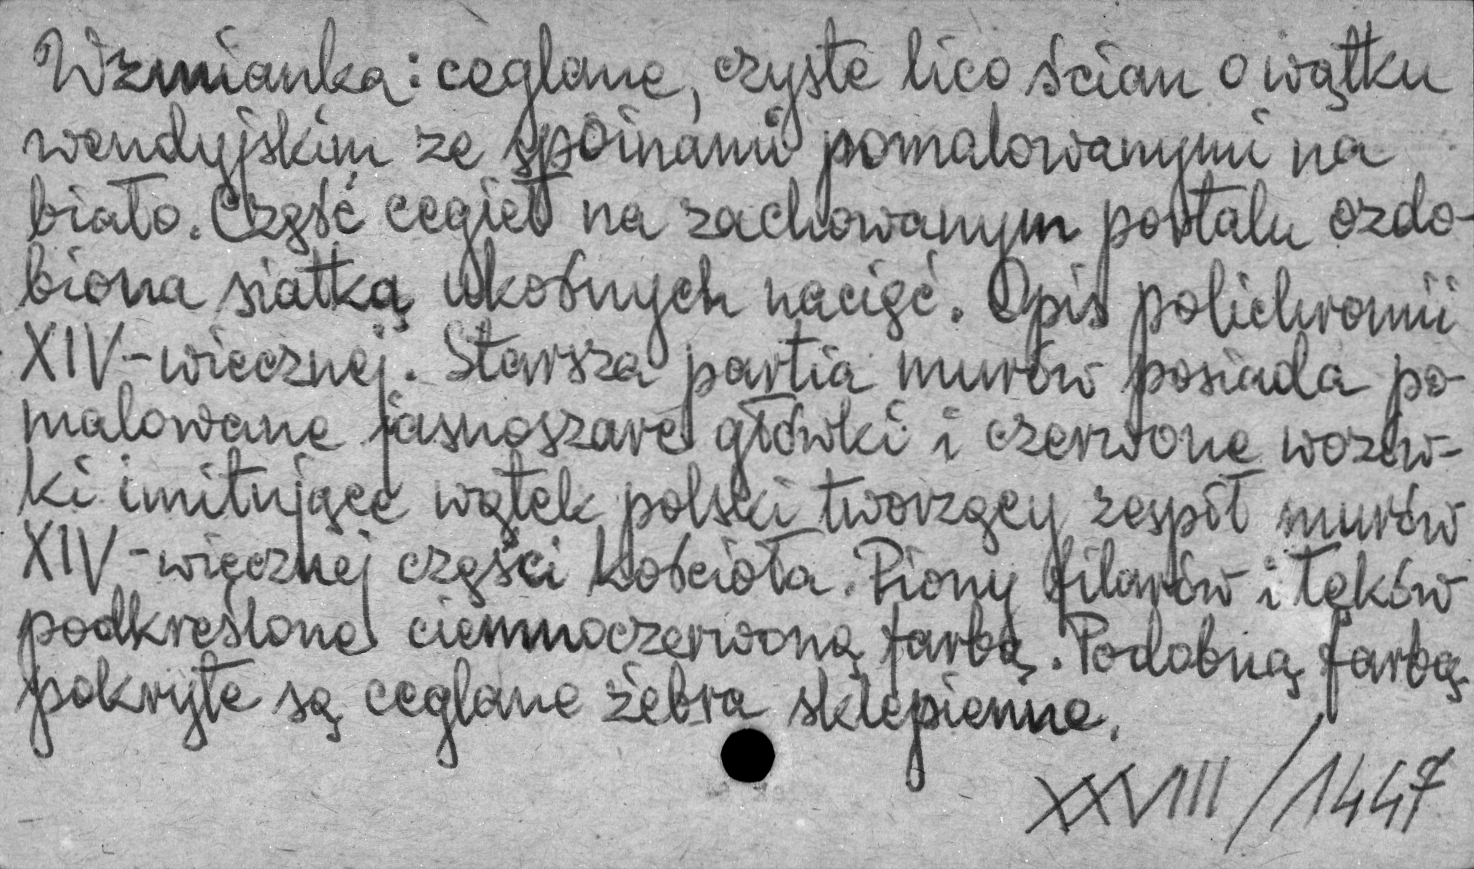 Wzmianka: ceglane, czyste lico ścian o wątku
wendyjskim ze spoinami pomalowanymi na
biało. Część cegieł na zachowanym portalu ozdo-
biona siatką ukośnych nacięć. Opis polichromii
XIV-wiecznej. Starsza partia murów posiada po-
malowane jasnoszare główki i czerwone wozów-
ki imitujące wątek polski tworzący zespół murów
XIV-więcznej części kościoła. Piony filarów i łęków
podkreślone ciemnoczerwoną farbą. Podobną farbą
pokryte są ceglane żebra sklepienne.
XXVIII/1447